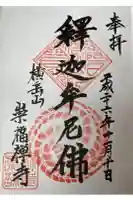 奉拝
平成二十二年一月十日
釋迦牟尼佛
横岳山
崇福禅寺